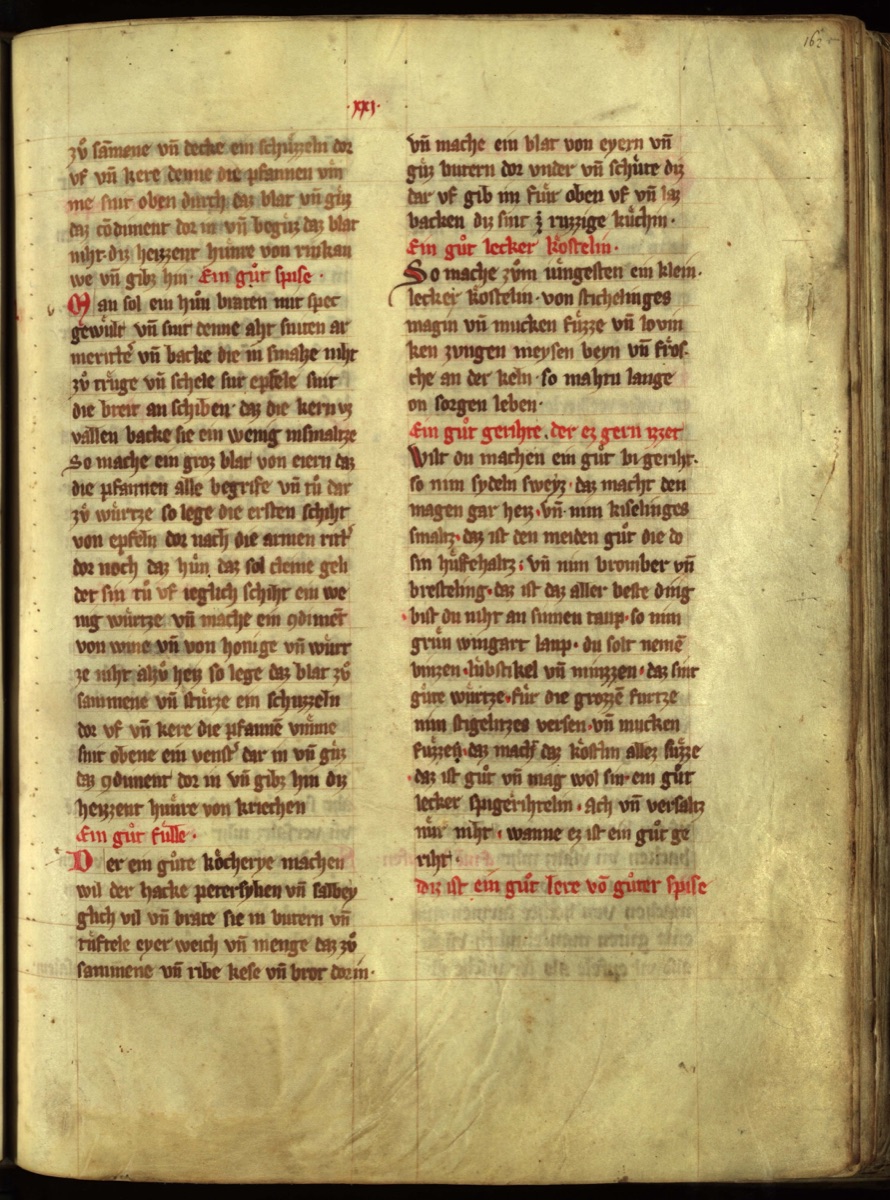 162
·xxi·
zv̊ sam̄ene vn̄ decke ein schüzzeln dor
vf vn̄ kere denne die pfannen vm̄
me snit oben durch daz blat vn̄ güz
daz cōdiment dor in vn̄ begüz daz blat
niht· diz heizzent hunre von rinkau
we vn̄ gibz hin · Ein gůt spise ·
Man sol ein hůn braten mit spec
gewült vn̄ snit denne aht sniten ar
meritte' vn̄ backe die in smaltze niht
zv̊ truge vn̄ schele sur epfele snit
die breit an schiben· daz die kern vz
vallen backe sie ein wenig in smaltze
So mache ein groz blat von eiern daz
die pfannen alle begrife vn̄ tů dar
zv̊ würtze so lege die ersten schiht
von epfeln dor nach die armen ritt'
dor noch daz hůn daz sol cleine geli
det sin tů vf ieglich schiht ein we
nig würtze vn̄ mache ein ꝯdimēt
von wine vn̄ von honige vn̄ würt
ze niht alzv̊ heiz so lege daz blat zv̊
sammene vn̄ stürze ein schuzzeln
dor vf vn̄ kere die pfannē vmme
snit obene ein venst' dar in vn̄ güz
daz ꝯdiment dor in vn̄ gibz hin diz
heizzent hunre von kriechen
Ein gůt fülle ·
Der ein gůte kocherye machen
wil der hacke petersylien vn̄ salbey
glich vil vn̄ brate sie in butern vn̄
rüftele eyer weich vn̄ menge daz zv̊
sammene vn̄ ribe kese vn̄ brot dor in·
vn̄ mache ein blat von eyern vn̄
güz butern dor vnder vn̄ schüte diz
dar vf gib im fiür oben vf vn̄ laz
backen diz sint ruzzige küchin ·
Ein gůt lecker kostelin ·
So mache zv̊m iüngesten ein klein·
lecker kostelin · von stichelinges
magin vn̄ mucken füzze vn̄ lovin
ken zvngen meysen beyn vn̄ frös·
che an der keln · so mahtu lange
on sorgen leben ·
Ein gůt gerihte, der ez gern izzet
Wilt du machen ein gůt bi geriht·
so nim sydeln sweyz · daz macht den
magen gar heiz · vn̄ nim kiselinges
smaltz · daz ist den meiden gůt die do
sin hüffehaltz ; vn̄ nim bromber vn̄
bresteling · daz ist daz aller beste ding
· bist du niht an sinnen taup · so nim
grün wingart laup · du solt nemē
binzen · lübstikel vn̄ minzzen · daz sint
gůte würtze · für die grozzē furtze
nim stigelitzes versen · vn̄ mucken
füzzen· daz mach daz köstlin allez süzze
· daz ist gůt vn̄ mag wol sin· ein gůt
lecker spigerihtelin · Ach vn̄ versaltz
mir niht · wanne ez ist ein gůt ge
riht ·
diz ist ein gůt lere vō gůter spise